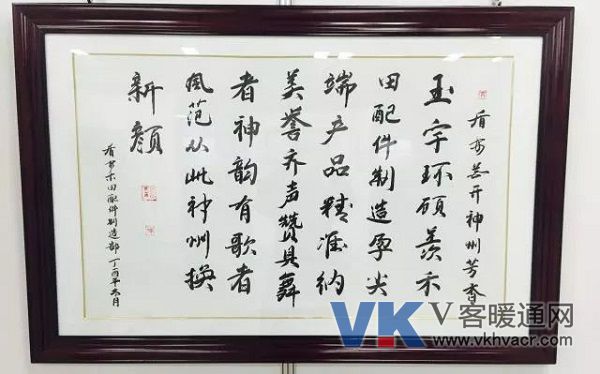 开神州芳香
玉宇环硕羡禾
田配件制造孕尖
端产品精准约
美誉齐声赞具舞
者神韵有歌者
風范从此神州换
新颜
禾田配件制造部 丁酉年六月
VK V客暖通网
www.vkhvacr.com